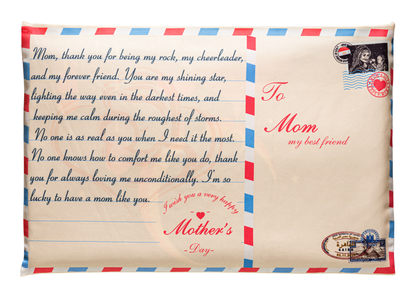 Mom, thank you for being my rock, my cheerleader,
and my forever friend. You are my shining star,
lighting the way even in the darkest times, and
keeping me calm during the roughest of storms.
No one is as real as you when I need it the most.
No one knows how to comfort me like you do, thank
you for always loving me unconditionally. I'm so
lucky to have a mom like you.
I wish you a very happy
Mother's
-Day-
To
Mom
my best friend